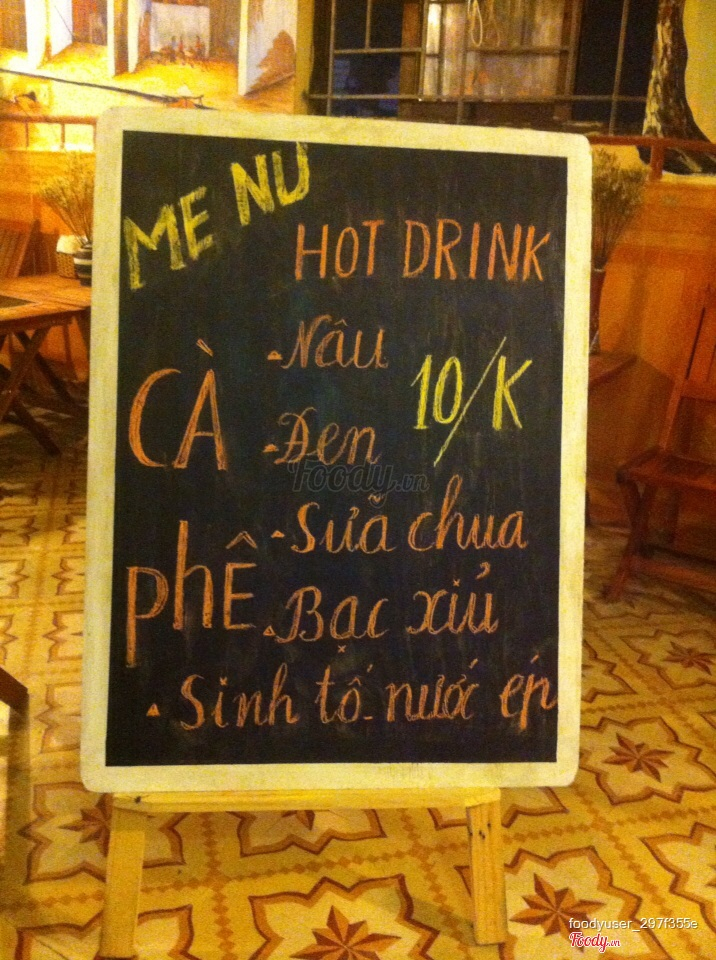 MENU
HOT DRINK
CÀ PHÊ
Nâu
10/K
Đen
Sữa chua
Bạc xỉu
Sinh tố - nước ép
Foody.vn
foodyuser_297f355e
Foody.vn